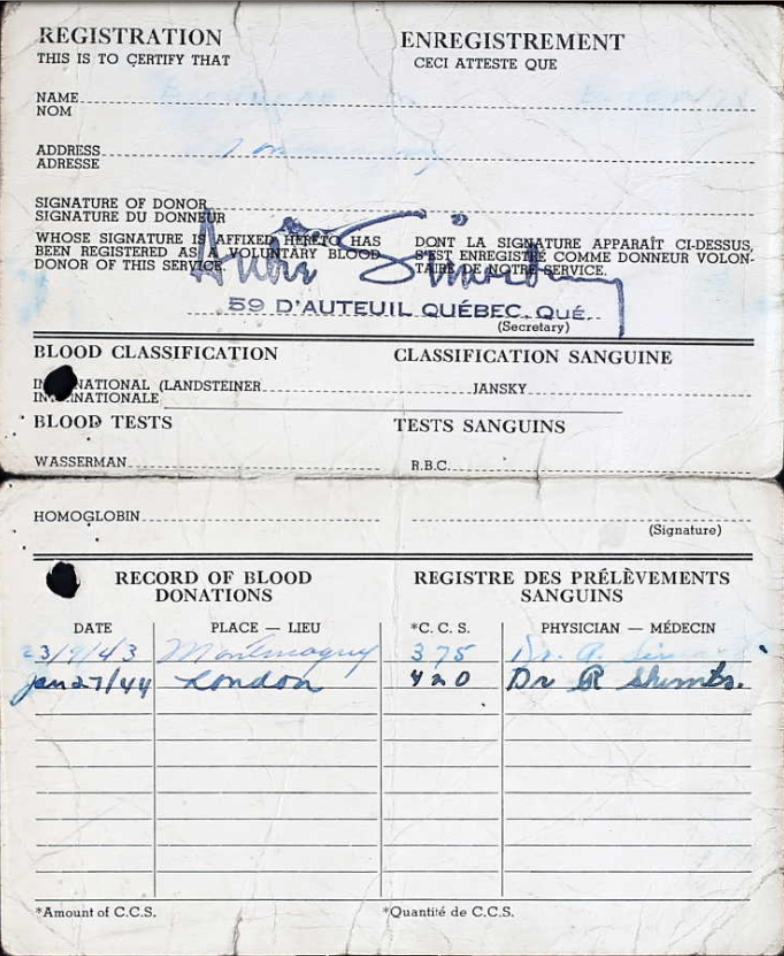 REGISTRATION ENREGISTREMENT
THIS IS TO CERTIFY THAT CECI ATTESTE QUE
NAME
NOM
ADDRESS
ADRESSE
SIGNATURE OF DONOR
SIGNATURE DU DONNEUR
WHOSE SIGNATURE IS AFFIXED HERETO HAS
BEEN REGISTERED AS A VOLUNTARY BLOOD
DONOR OF THIS SERVICE.
DONT LA SIGNATURE APPARAÎT CI-DESSUS,
S'EST ENREGISTRÉ COMME DONNEUR VOLON-
TAIRE DE NOTRE SERVICE.
59 D'AUTEUIL QUÉBEC, QUÉ.
(Secretary)
BLOOD CLASSIFICATION CLASSIFICATION SANGUINE
INTERNATIONAL (LANDSTEINER JANSKY
INTERNATIONALE
BLOOD TESTS TESTS SANGUINS
WASSERMAN R.B.C.
HOMOGLOBIN
(Signature)
RECORD OF BLOOD
DONATIONS
REGISTRE DES PRÉLÈVEMENTS
SANGUINS
DATE PLACE — LIEU *C. C. S. PHYSICIAN — MÉDECIN
23/9/43 Montmagny 375 Dr. A.
Jan 27/44 London 420 Dr R
*Amount of C.C.S. *Quantité de C.C.S.